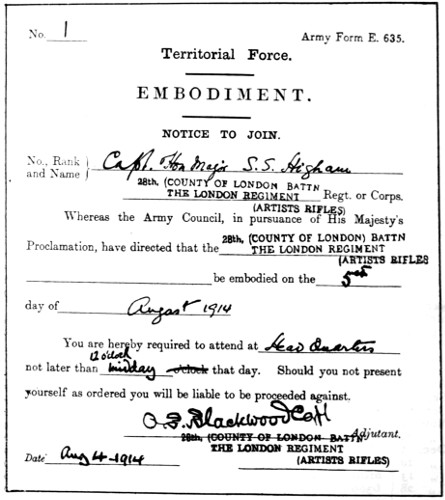 No. 1 Army Form E. 635.
Territorial Force.
EMBODIMENT.
NOTICE TO JOIN.
No., Rank and Name } Capt. Hon Major S. S. Higham
28th, (COUNTY OF LONDON BATTN
THE LONDON REGIMENT Regt. or Corps.
(ARTISTS RIFLES)
Whereas the Army Council, in pursuance of His Majesty's
Proclamation, have directed that the 28th, (COUNTY OF LONDON) BATTN
THE LONDON REGIMENT
(ARTISTS RIFLES
be embodied on the 5th
day of August 1914
You are hereby required to attend at Head Quarters
12 o'clock
not later than midday o'clock that day. Should you not present
yourself as ordered you will be liable to be proceeded against.
Blackwood
Adjutant.
28th, (COUNTY OF LONDON BATTN
THE LONDON REGIMENT
Date Aug 4-1914 (ARTISTS RIFLES)